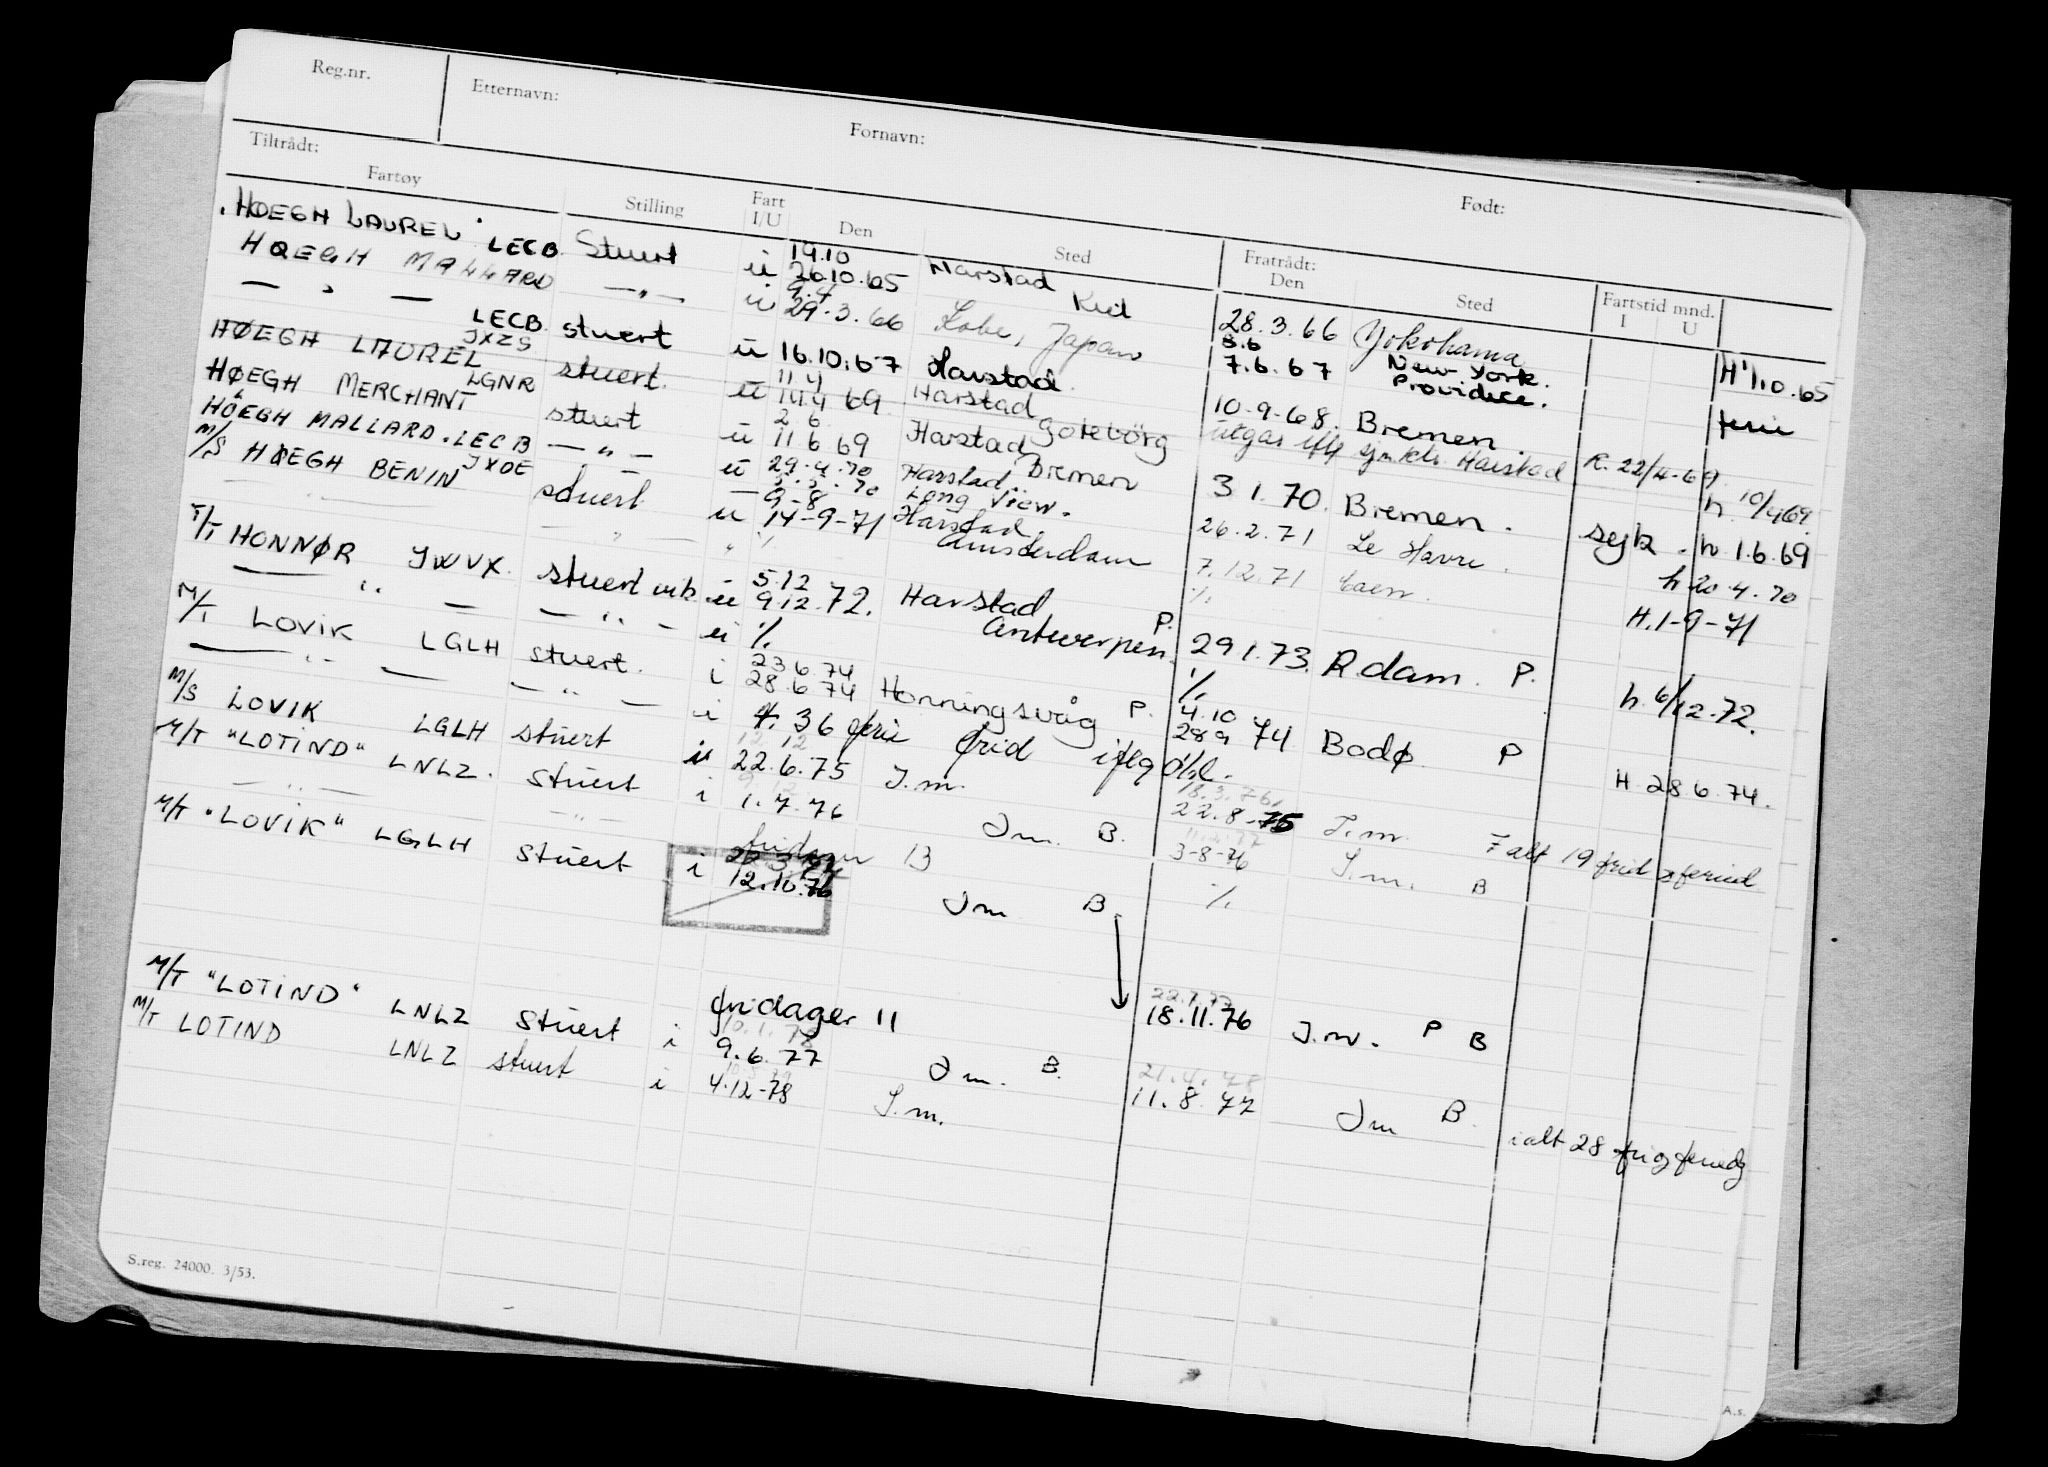 Reg.nr.
Etternavn:
Fornavn:
Født:
Tiltrådt:
Fartøy
Stilling
Fart I/U
Den
Sted
Fratrådt: Den
Sted
Fartstid mnd.
I U
"HØEGH LAUREL" LECB Stuert ü 19.10 26.10.65 Harstad Kiel 28.3.66 Yokohama H 1.10.65
HØEGH MALLARD — " — ü 9.4 29.3.66 Kobe, Japan 8.6 7.6.67 New York. Providece. ferie
— " — LECB stuert ü 16.10.67 Harstad. 10.9.68. Bremen
HØEGH LAUREL JXZS stuert. ü 11.4 14.4 69 Harstad Gotebörg utgår iflg sjm.ktr. Harstad R. 22/4-69. h. 10/4 69
HØEGH MERCHANT LGNR stuert ü 2 6 11 6 69 Harstad Bremen 3 1. 70. Bremen. sejk. h. 1.6.69
HÖEGH MALLARD. LECB — " — ü 29.4.70 5.5.70 Harstad. Long View. 26.2.71 Le Havre. h 20.4.70
M/S HØEGH BENIN JXOE stuert ü 9-8 14-9-71 Harstad. Amsterdam 7.12.71 H. 1-9-71
" " ./. ./.
T/T HONNØR JWVX. stuert vik. ü 5.12 9.12.72. Harstad Antwerpen. P. 29 1.73. R.dam. P. h. 6/12.72.
— " — — " — ü ./. ./.
M/T LOVIK LGLH stuert. i 23 6 74 28.6 74 Honningsvåg P. 4.10 28 9 74 Bodø P H. 28 6. 74.
— " — — " — i ./. 36 ferie frid iflg
M/S LOVIK LGLH stuert ü 12 12 22.6.75 I.m. 18.3.76 22.8.75 I.m. I alt 19 frid
M/T "LOTIND" LNLZ. stuert i 1.7.76 Im. B. 3-8-76 I.m. B
— " — — " — fridager 13 ./.
M/T "LOVIK" LGLH stuert i 12.10.76 Im B
fridager 11 18.11.76 I.m. P B
M/T "LOTIND" LNLZ stuert i 10.1.78 9.6.77 Im. B. 21.4.78 11.8 77 Im B. i alt 28
M/T LOTIND LNLZ stuert i 4.12-78 I.m.
S.reg. 24000. 3/53.
A.s.